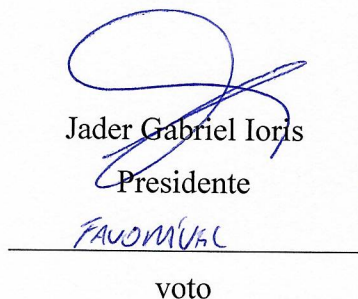 Jader Gabriel Ioris
Presidente
FAVORÁVEL
voto